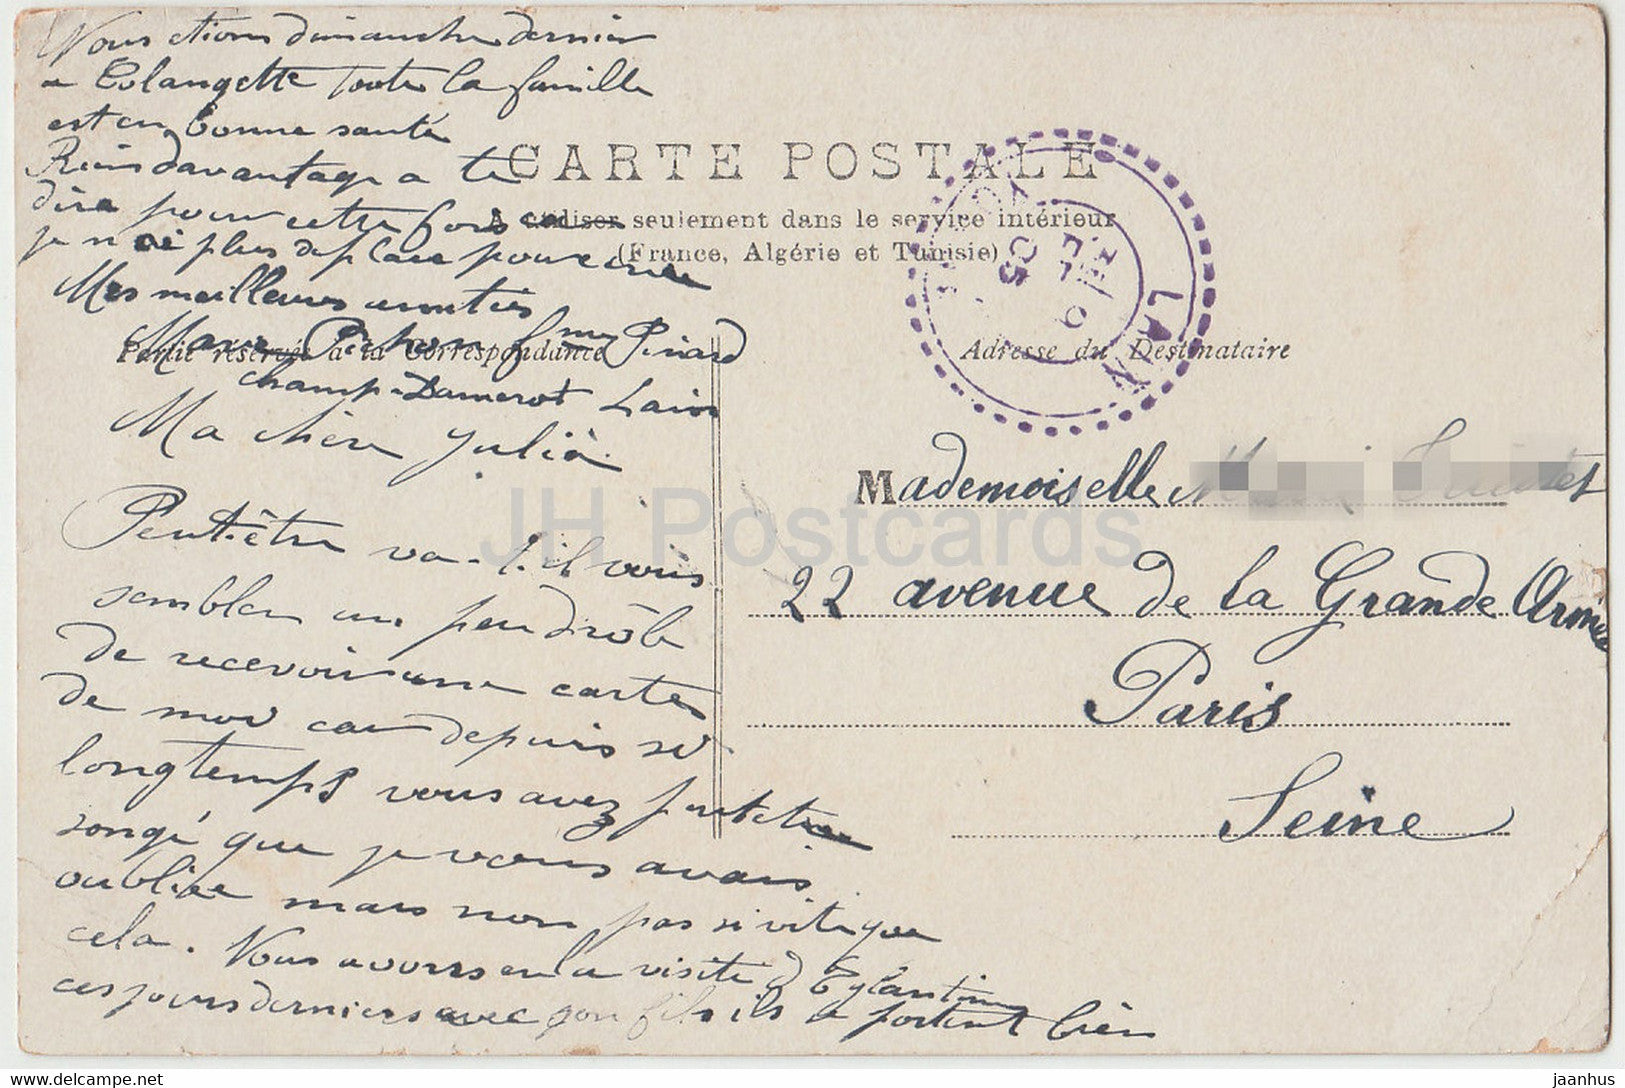 Nous etions dimanche dernier
a Colangette toute la famille
est en bonne santé
Rien davantage a te
dire pour cette fois
je n ai plus de place pour
Mes meilleures amitiés
Pichon fme Pinard
champ-Damerot Lain
CARTE POSTALE
A utiliser seulement dans le service intérieur
(France, Algérie et Tunisie)
Partie réservée à la Correspondance
Adresse du Destinataire
Ma chère Julià
Peut-être va-t-il vous
sembler un peu drôle
de recevoir une carte
de moi car depuis si
longtemps vous avez peut etre
songé que je vous avais
oubliee mais non pas si vite que
cela. Nous avons eu la visite d Eglantine
ces jours derniers avec son fils ils se portent bien
Mademoiselle
22 avenue de la Grande Armée
Paris
Seine
JH Postcards
jaanhus